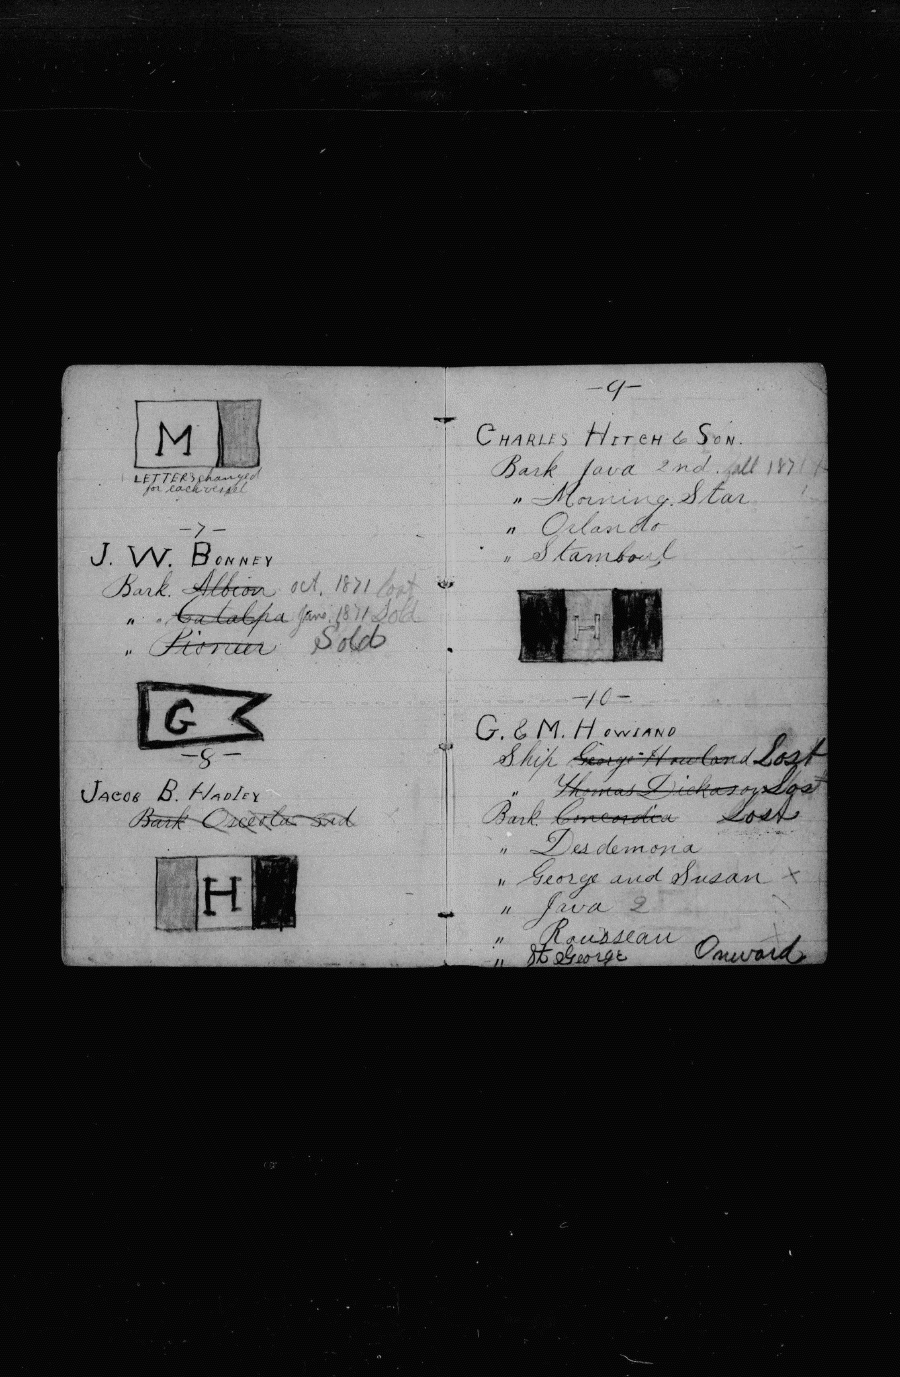 M
LETTERS changed
for each vessel
-7-
J. W. BONNEY
Bark. Albion oct. 1871 lost
" " Catalpa Jan. 1871 Sold
" Pioneer Sold
G
-8-
JACOB B. HADLEY
Bark Osceola
H
-9-
CHARLES HITCH & SON.
Bark Java 2nd. fall 1871
" Morning Star
" Orlando
" Stamboul
H
-10-
G. & M. HOWLAND
Ship George Howland Lost
" Thomas Dickason Lost
Bark. Concordia Lost
" Desdemona
" George and Susan X
" Java 2
" Rousseau
" St George Onward